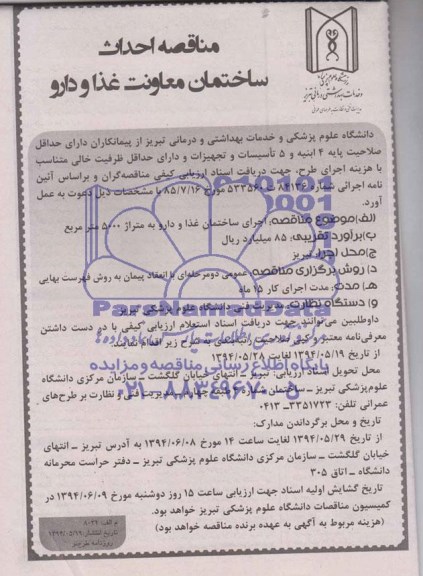 مناقصه احداث
ساختمان معاونت غذا و دارو
دانشگاه علوم پزشکی
و خدمات بهداشتی درمانی تبریز
دانشگاه علوم پزشکی و خدمات بهداشتی و درمانی تبریز از پیمانکاران دارای حداقل
صلاحیت پایه ۴ ابنیه و ۵ تأسیسات و تجهیزات و دارای حداقل ظرفیت خالی متناسب
با هزینه اجرای طرح، جهت دریافت اسناد ارزیابی کیفی مناقصه‌گران و براساس آئین
نامه اجرائی شماره ۸۴۱۳۶ ت ۵۳۳۵۶۰ مورخ ۸۵/۷/۱۶ با مشخصات ذیل دعوت به عمل
آورد.
الف)موضوع مناقصه: اجرای ساختمان غذا و دارو به متراژ ۵۰۰۰ متر مربع
ب)برآورد تقریبی: ۸۵ میلیارد ریال
ج)محل اجرا: تبریز
د) روش برگزاری مناقصه: عمومی دومرحله‌ای با انعقاد پیمان به روش فهرست بهایی
هـ) مدت: مدت اجرای کار ۱۵ ماه
و) دستگاه نظارت: مدیریت فنی دانشگاه علوم پزشکی تبریز
داوطلبین می‌توانند جهت دریافت اسناد استعلام ارزیابی کیفی با در دست داشتن
معرفی‌نامه معتبر و کپی صلاحیت رتبه‌بندی به شرح زیر اقدام نمایند.
از تاریخ ۱۳۹۴/۰۵/۱۹ لغایت ۱۳۹۴/۰۵/۲۸
محل تحویل اسناد ارزیابی: تبریز – انتهای خیابان گلگشت – سازمان مرکزی دانشگاه
علوم‌پزشکی تبریز – ساختمان شماره طبقه چهارم مدیریت فنی و نظارت بر طرح‌های
عمرانی تلفن: ۳۳۵۱۷۲۳– ۰۴۱۳
تاریخ و محل برگرداندن مدارک:
از تاریخ ۱۳۹۴/۰۵/۲۹ لغایت ساعت ۱۴ مورخ ۱۳۹۴/۰۶/۰۸ به آدرس تبریز – انتهای
خیابان گلگشت – سازمان مرکزی دانشگاه علوم پزشکی تبریز – دفتر حراست محرمانه
دانشگاه – اتاق ۳۰۵
تاریخ گشایش اولیه اسناد جهت ارزیابی ساعت ۱۵ روز دوشنبه مورخ ۱۳۹۴/۰۶/۰۹ در
کمیسیون مناقصات دانشگاه علوم پزشکی تبریز خواهد بود.
(هزینه مربوط به آگهی به عهده برنده مناقصه خواهد بود)
ParsNamadData
پایگاه اطلاع رسانی مناقصه و مزایده
۰۲۱-۸۸۳۴۹۶۷۰-۵